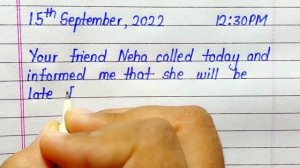 15th September, 2022 12:30PM
Your friend Neha called today and
informed me that she will be
late